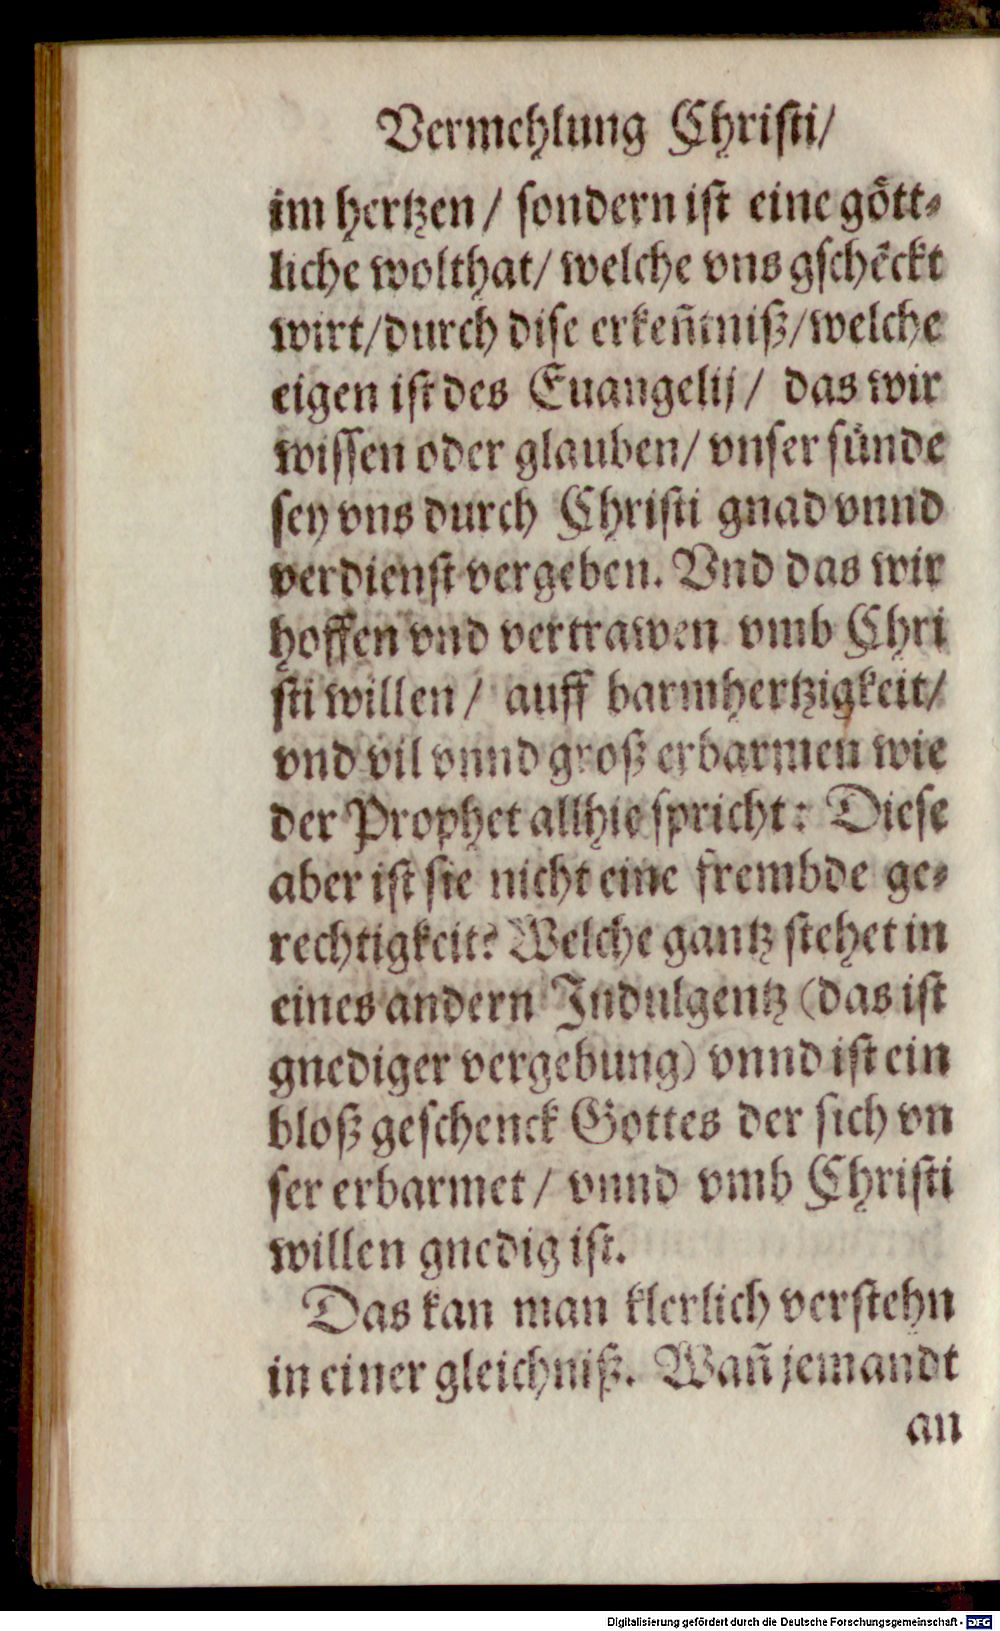 Vermehlung Christi/
im hertzen / sondern ist eine gött-
liche wolthat/ welche vns gschēckt
wirt/durch dise erkeñtniß/welche
eigen ist des Euangelij / das wir
wissen oder glauben/ vnser sünde
sey vns durch Christi gnad vnnd
verdienst vergeben. Vnd das wir
hoffen vnd vertrawen vmb Chri
sti willen / auff barmhertzigkeit/
vnd vil vnnd groß erbarmen wie
der Prophet allhie spricht: Diese
aber ist sie nicht eine frembde ge-
rechtigkeit? Welche gantz stehet in
eines andern Indulgentz (das ist
gnediger vergebung) vnnd ist ein
bloß geschenck Gottes der sich vn
ser erbarmet / vnnd vmb Christi
willen gnedig ist.
Das kan man klerlich verstehn
in einer gleichniß. Wañ jemandt
an
Digitalisierung gefördert durch die Deutsche Forschungsgemeinschaft - DFG